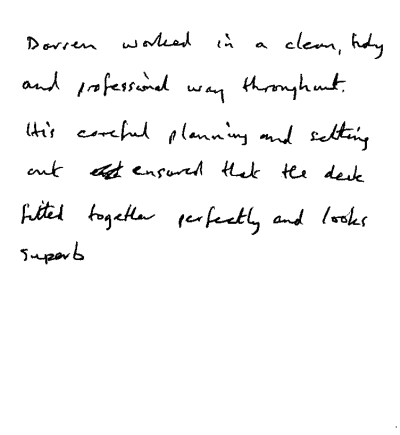 Darren worked in a clean, tidy
and professional way throughout.
His careful planning and setting
out ensured that the deck
fitted together perfectly and looks
superb